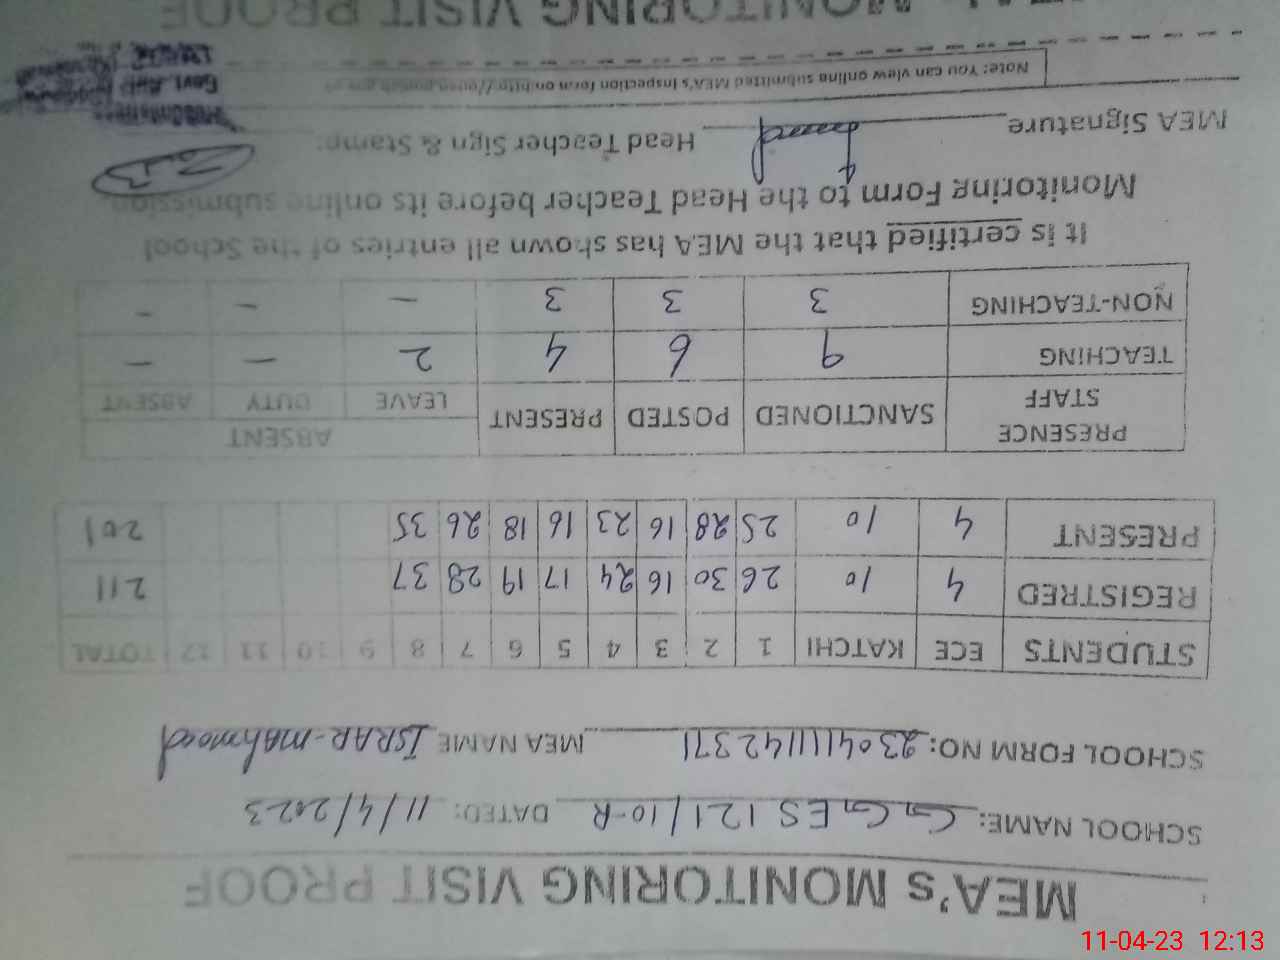 MEA's MONITORING VISIT PROOF
SCHOOL NAME: GGES 121/10-R DATED: 11/4/2023
SCHOOL FORM NO: MEA NAME ISRAR-mahmood
STUDENTS ECE KATCHI 1 2 3 4 5 6 7 8 9 10 11 12 TOTAL
REGISTRED 4 10 26 30 16 24 17 19 28 37 211
PRESENT 4 10 25 28 16 23 16 18 26 35 201
PRESENCE STAFF SANCTIONED POSTED PRESENT ABSENT
LEAVE DUTY ABSENT
TEACHING 9 6 4 2 – – 
NON-TEACHING 3 3 3 – – –
It is certified that the MEA has shown all entries of the School
Monitoring Form to the Head Teacher before its online submission.
MEA Signature Head Teacher Sign & Stamp:
Note: You can view online submitted MEA's inspection form on
MONITORING VISIT PROOF
11-04-23 12:13